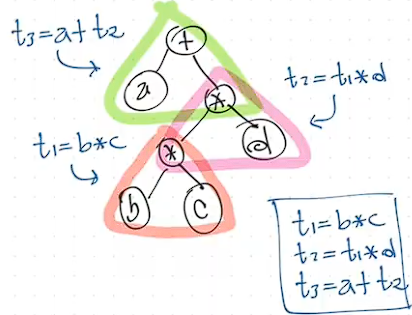 t3=a+t2
+
a
*
t2=t1*d
t1=b*c
*
d
b
c
t1=b*c
t2=t1*d
t3=a+t2